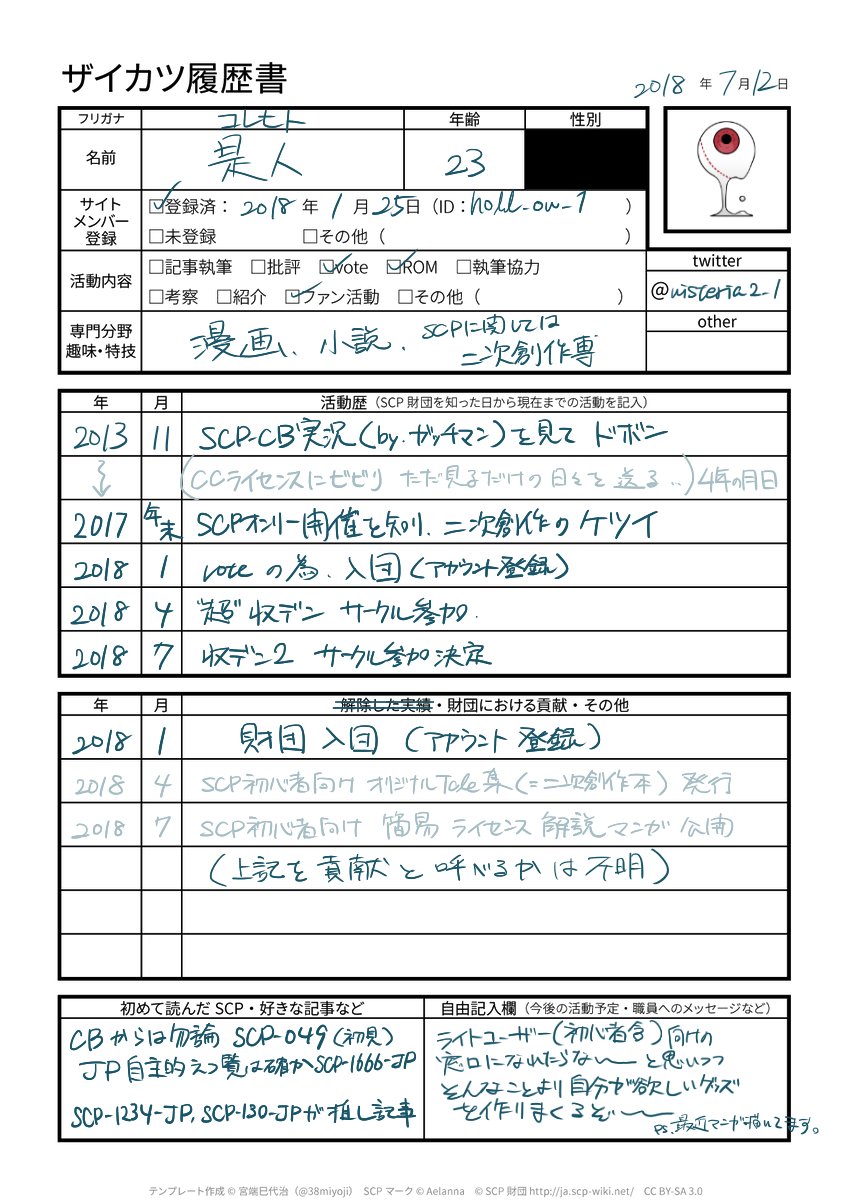 ザイカツ履歴書
2018 年 7月12日
フリガナ コレモト 年齢 性別
名前 是人 23
サイトメンバー登録
☑登録済: 2018 年 1 月 25日 (ID:holl-ow-1 )
□未登録 □その他 ( )
活動内容
□記事執筆 □批評 ☑vote ☑ROM □執筆協力
□考察 □紹介 ☑ファン活動 □その他 ( )
twitter
@wisteria2_1
other
専門分野
趣味・特技
漫画、小説、SCPに関しては
二次創作専
年 月 活動歴 (SCP 財団を知った日から現在までの活動を記入)
2013 11 SCP-CB実況(by.ガッチマン)を見て ドボン
(CCライセンスにビビり ただ見るだけの日々を送る...)4年の月日
2017 年末 SCPオンリー開催を知り、二次創作のケツイ
2018 1 voteの為、入団(アカウント登録)
2018 4 "超"収デン サークル参加.
2018 7 収デン2 サークル参加決定
年 月 解除した実績・財団における貢献・その他
2018 1 財団 入団 (アカウント登録)
2018 4 SCP初心者向け オリジナルTale集(=二次創作本) 発行
2018 7 SCP初心者向け 簡易 ライセンス 解説マンガ 公開
(上記を貢献と呼べるかは不明)
初めて読んだ SCP・好きな記事など
CBからは勿論 SCP-049(初見)
JP自主的えつ覧は確かSCP-1666-JP
SCP-1234-JP、SCP-130-JPが推し記事
自由記入欄 (今後の活動予定・職員へのメッセージなど)
ライトユーザー(初心者含)向けの
窓口になれたらな〜 と思いつつ
そんなことより自分が欲しいグッズ
を作りまくるぞ〜
ps.最近マンガ描いてます。
テンプレート作成 © 宮端巳代治 (@38miyoji) SCP マーク © Aelanna © SCP 財団 http://ja.scp-wiki.net/ CC BY-SA 3.0